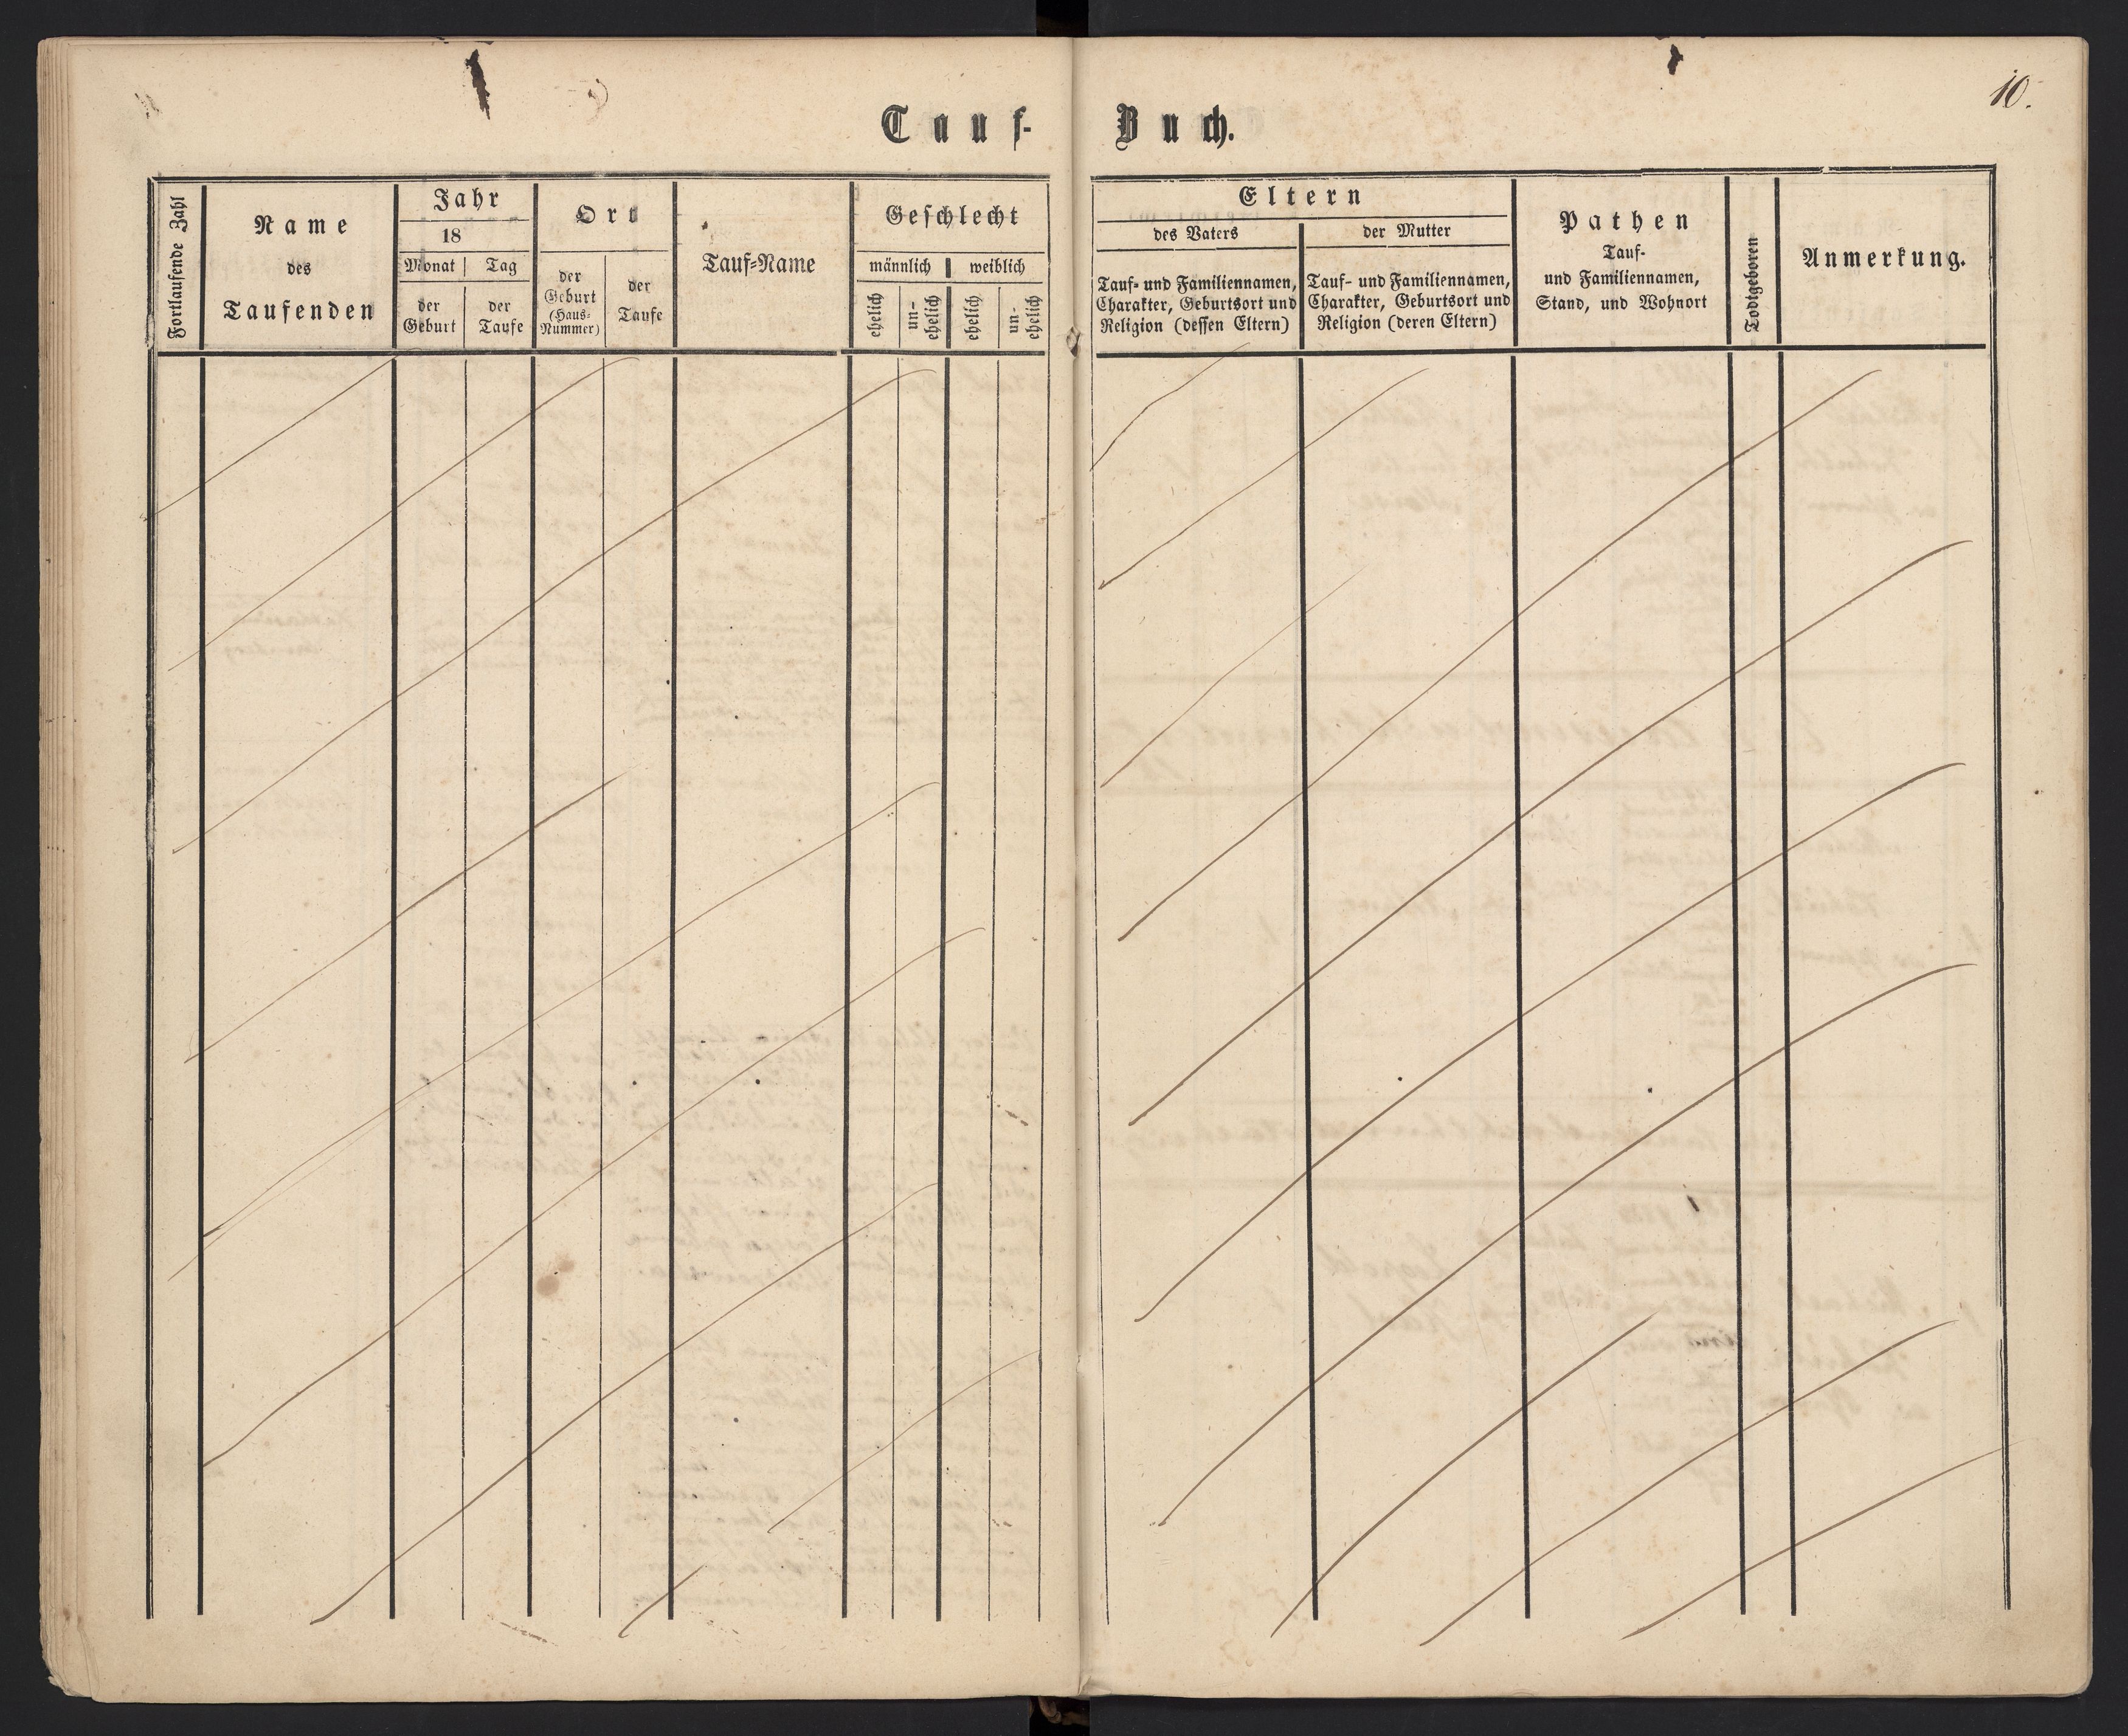 10.
Tauf-Buch.
Fortlaufende Zahl
Name
des
Taufenden
Jahr
18
Monat | Tag
der Geburt
der Taufe
Ort
der Geburt (Haus-Nummer)
der Taufe
Tauf-Name
Geschlecht
männlich | weiblich
ehelich
un-ehelich
ehelich
un-ehelich
Eltern
des Vaters
Tauf- und Familiennamen,
Charakter, Geburtsort und
Religion (dessen Eltern)
der Mutter
Tauf- und Familiennamen,
Charakter, Geburtsort und
Religion (deren Eltern)
Pathen
Tauf-
und Familiennamen,
Stand, und Wohnort
Todtgeboren
Anmerkung.